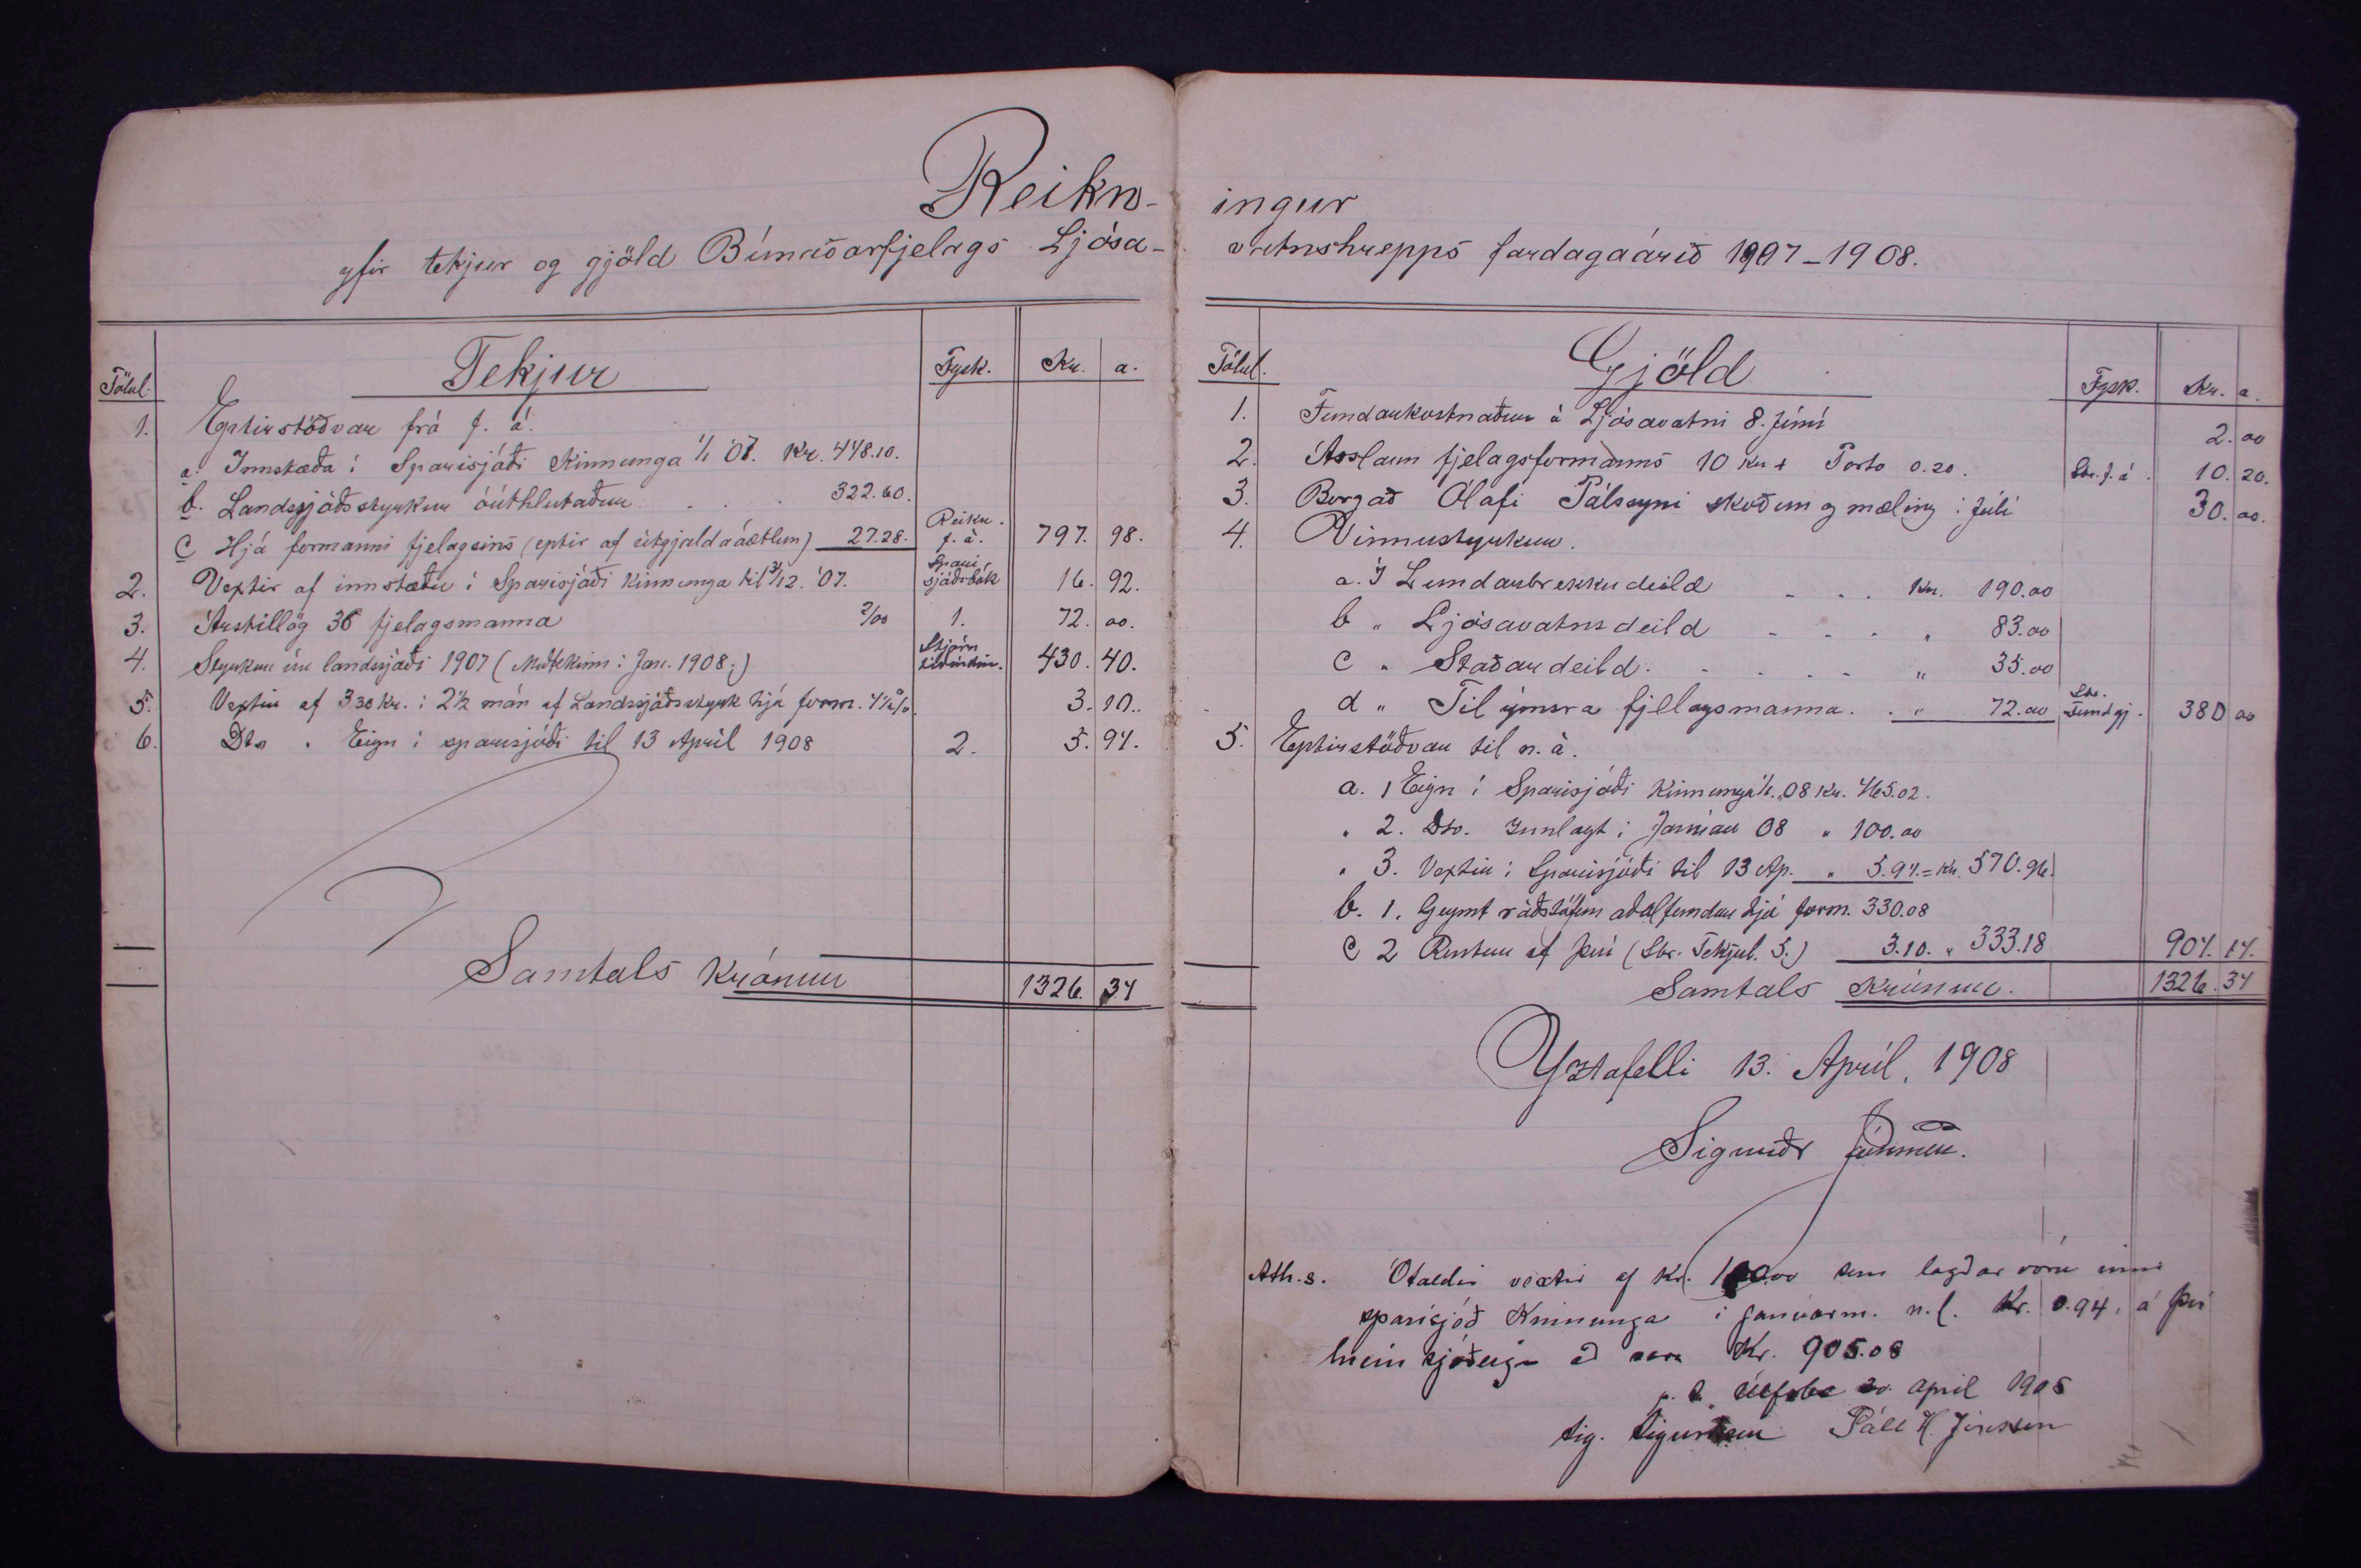 Reikn-ingur
yfir tekjur og gjöld Búnaðarfjelags Ljósa-vatnshrepps fardagaárið 1907-1908.
Tölul. Tekjur Fysk. Kr. a.
1. Eptirstöðvar frá f. á.
a. Innstæða í Sparisjóði Kinnunga 1/1 '07. Kr. 448.10.
b. Landssjóðsstyrkur óúthlutaður . . . 322.60.
c Hjá formanni fjelagsins (eptir af útgjaldaáætlun) 27.28. Reikn. f. á. 797. 98.
2. Vextir af innstæðu í Sparisjóði Kinnunga til 31/12. '07. Spari sjóðsbók 16. 92.
3. Árstillög 36 fjelagsmanna 2/00 1. 72. 00.
4. Styrkur úr landssjóði 1907 (Meðtekinn í Jan. 1908.) Stjórn tíðindin. 430. 40.
5. Vextir af 330 Kr. í 2 1/2 mán af Landssjóðsstyrk hjá form. 4 1/2 %. 3. 10.
6. Dto " Eign í sparisjóði til 13 Apríl 1908 2. 5. 94.
Samtals Krónur 1326. 34
Tölul. Gjöld Fysk. Kr. a.
1. Fundarkostnaður á Ljósavatni 8. Júní 2. 00
2. Árslaun fjelagsformanns 10 kr + Porto 0.20. Sbr. f. á. 10. 20.
3. Borgað Olafi Pálssyni skoðun og mæling í Júlí 30. 00.
4. Vinnustyrkur.
a. Í Lundarbrekkudeild - . . Kr. 190.00
b " Ljósavatnsdeild - - - " 83.00
c " Staðardeild. . . . - " 35.00
d " Til ýmsra fjelagsmanna. . " 72.00 Sbr. Fundgj. 380 00
5. Eptirstöðvar til n. á.
a. 1 Eign í Sparisjóði Kinnunga 1/1. 08 Kr. 465.02.
" 2. Dto. Innlagt í Janúar 08 " 100.00
" 3. Vextir í Sparisjóði til 13 Ap. " 5.94. = Kr. 570.96.
b. 1. Geymt ráðstöfun aðalfundar hjá form. 330.08
c 2 Rentur af því (Sbr. Tekjul. 5.) 3.10. " 333.18 904. 14.
Samtals Krónur. 1326. 34
Yztafelli 13. Apríl. 1908
Sigurðr Jónsson.
Ath.s. Ótaldir vextir af Kr. 100.00 sem lagðar vóru inní
sparisjóð Kinnunga í janúarm. n.l. Kr. 0.94, á því
hrein sjóðeign að vera Kr. 905.08
20. april 1908
Sig. Sigurðsson Páll H. Jónsson